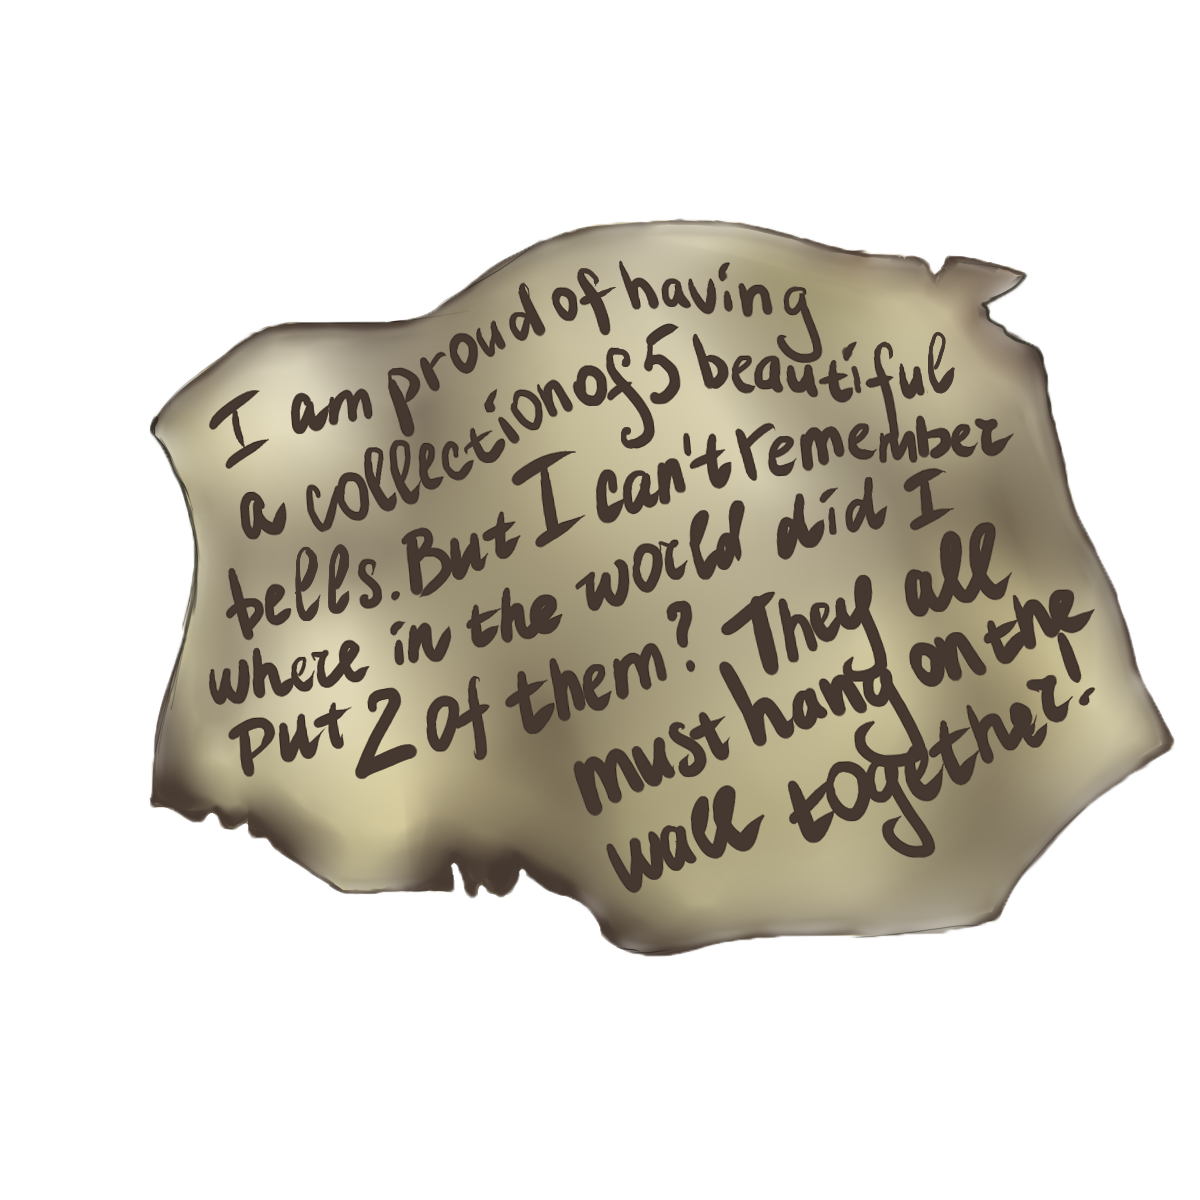 I am proud of having
a collection of 5 beautiful
bells. But I can't remember
where in the world did I
put 2 of them? They all
must hang on the
wall together!